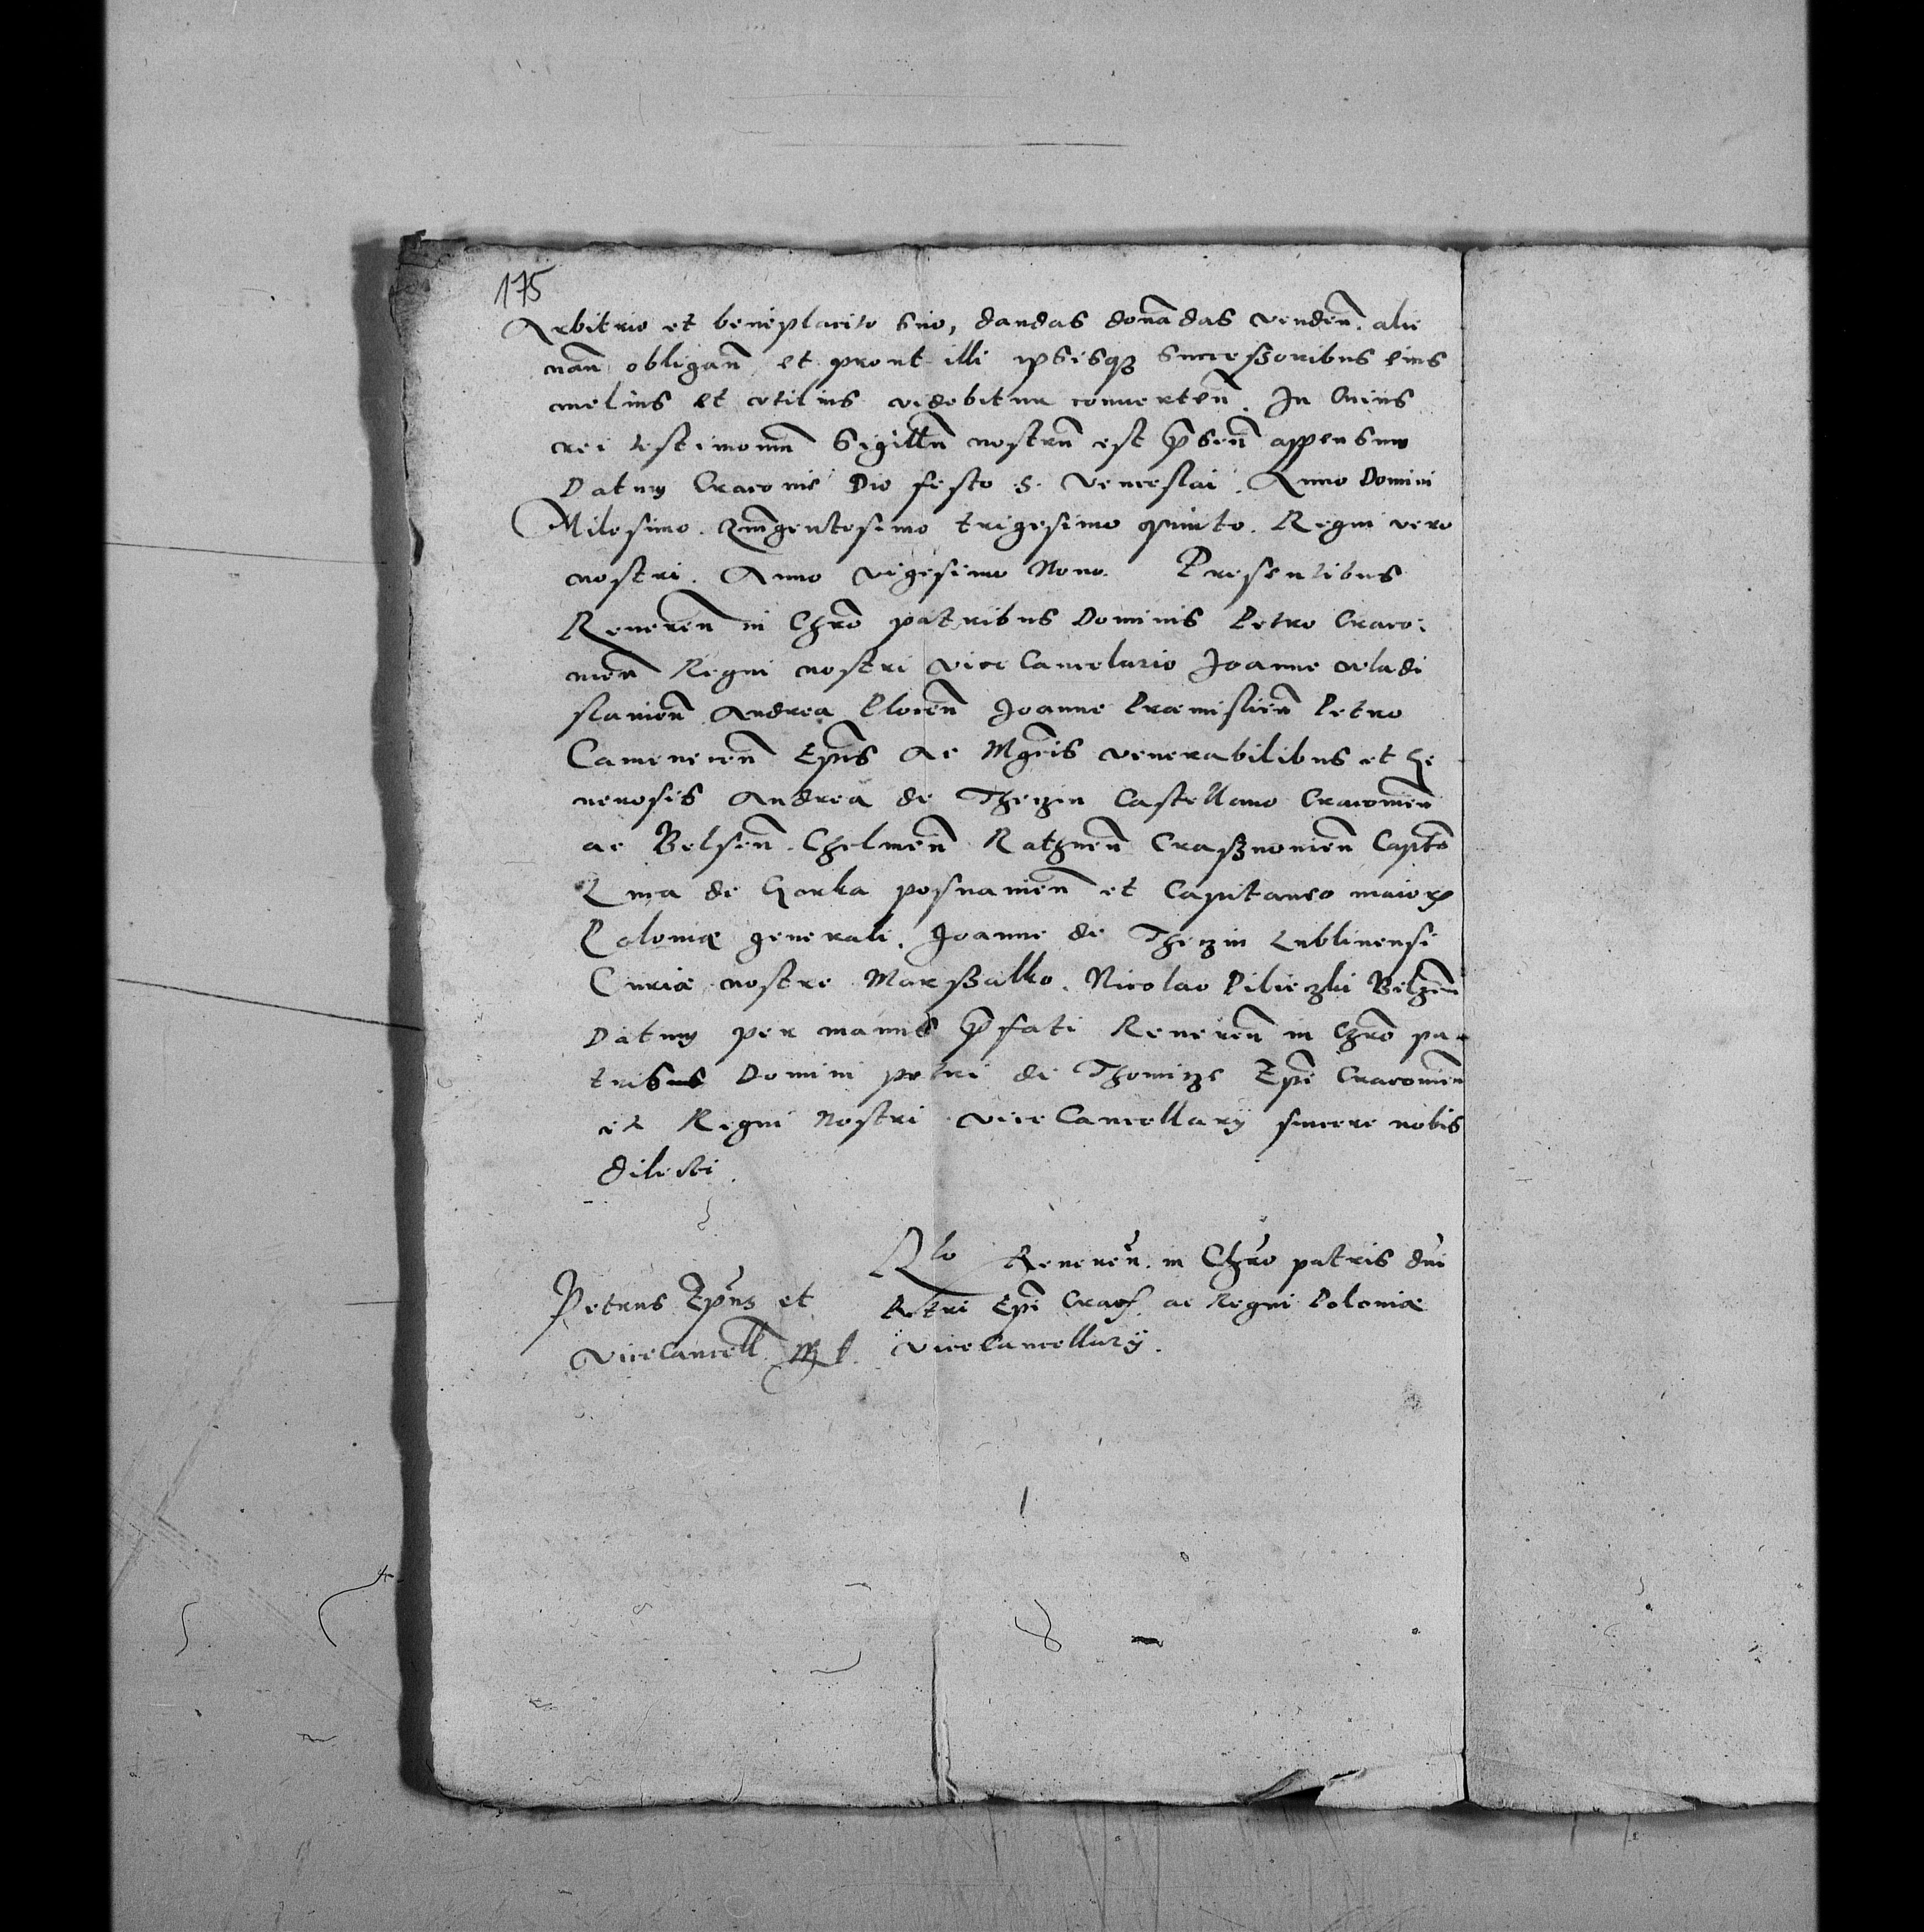 175
Arbitrio et beneplacito suo, dandas donãdas vendeñ. alie
nañ obligañ et prout illi ipsisqz successoribus eius
melius et vtilius videbitur conuerteñ. In Cuius
rei testimoniũ Sigillũ nostrũ est p̃señ appensum
Datum Cracoviæ Die festo S. Venceslai. Anno Domini
Milesimo. Quĩgentesimo trigesimo quinto. Regni vero
nostri. Anno vigesimo Nono. Presentibus
Reuereñ in Chrõ patribus Dominis Petro Craco:
vieñ Regni nostri vice Cancelario Joanne vladi
slavieñ Andrea Ploceñ Joanne Præmislieñ Petro
Cameneceñ Ep̃us ac Mgc̃is venerabilibus et Ge
nerosis Andrea de Thenzin Castellano Cracovieñ
ac Belseñ. Chelmeñ Rathneñ Craßnovieñ Capt̃o
Luca de Gorka posnanieñ et Capitaneo maioris
Poloniæ generali. Joanne de Thenzin Lublinensi
Curiæ nostre Marßalko. Nicolao Pilieczki Belzeñ
Datum per manus p̃fati Reuereñ in Chrõ pa
tris Domini petri de Thomicze Ep̃i Cracovieñ
et Regni Nostri vice Cancellarij sincere nobis
dilecti.
Rlo Reuereñ. in Chrõ patris dñi
Petri Ep̃i Crac. ac Regni Poloniæ
viceCancellarij.
Petrus Ep̃us et
viceCancell